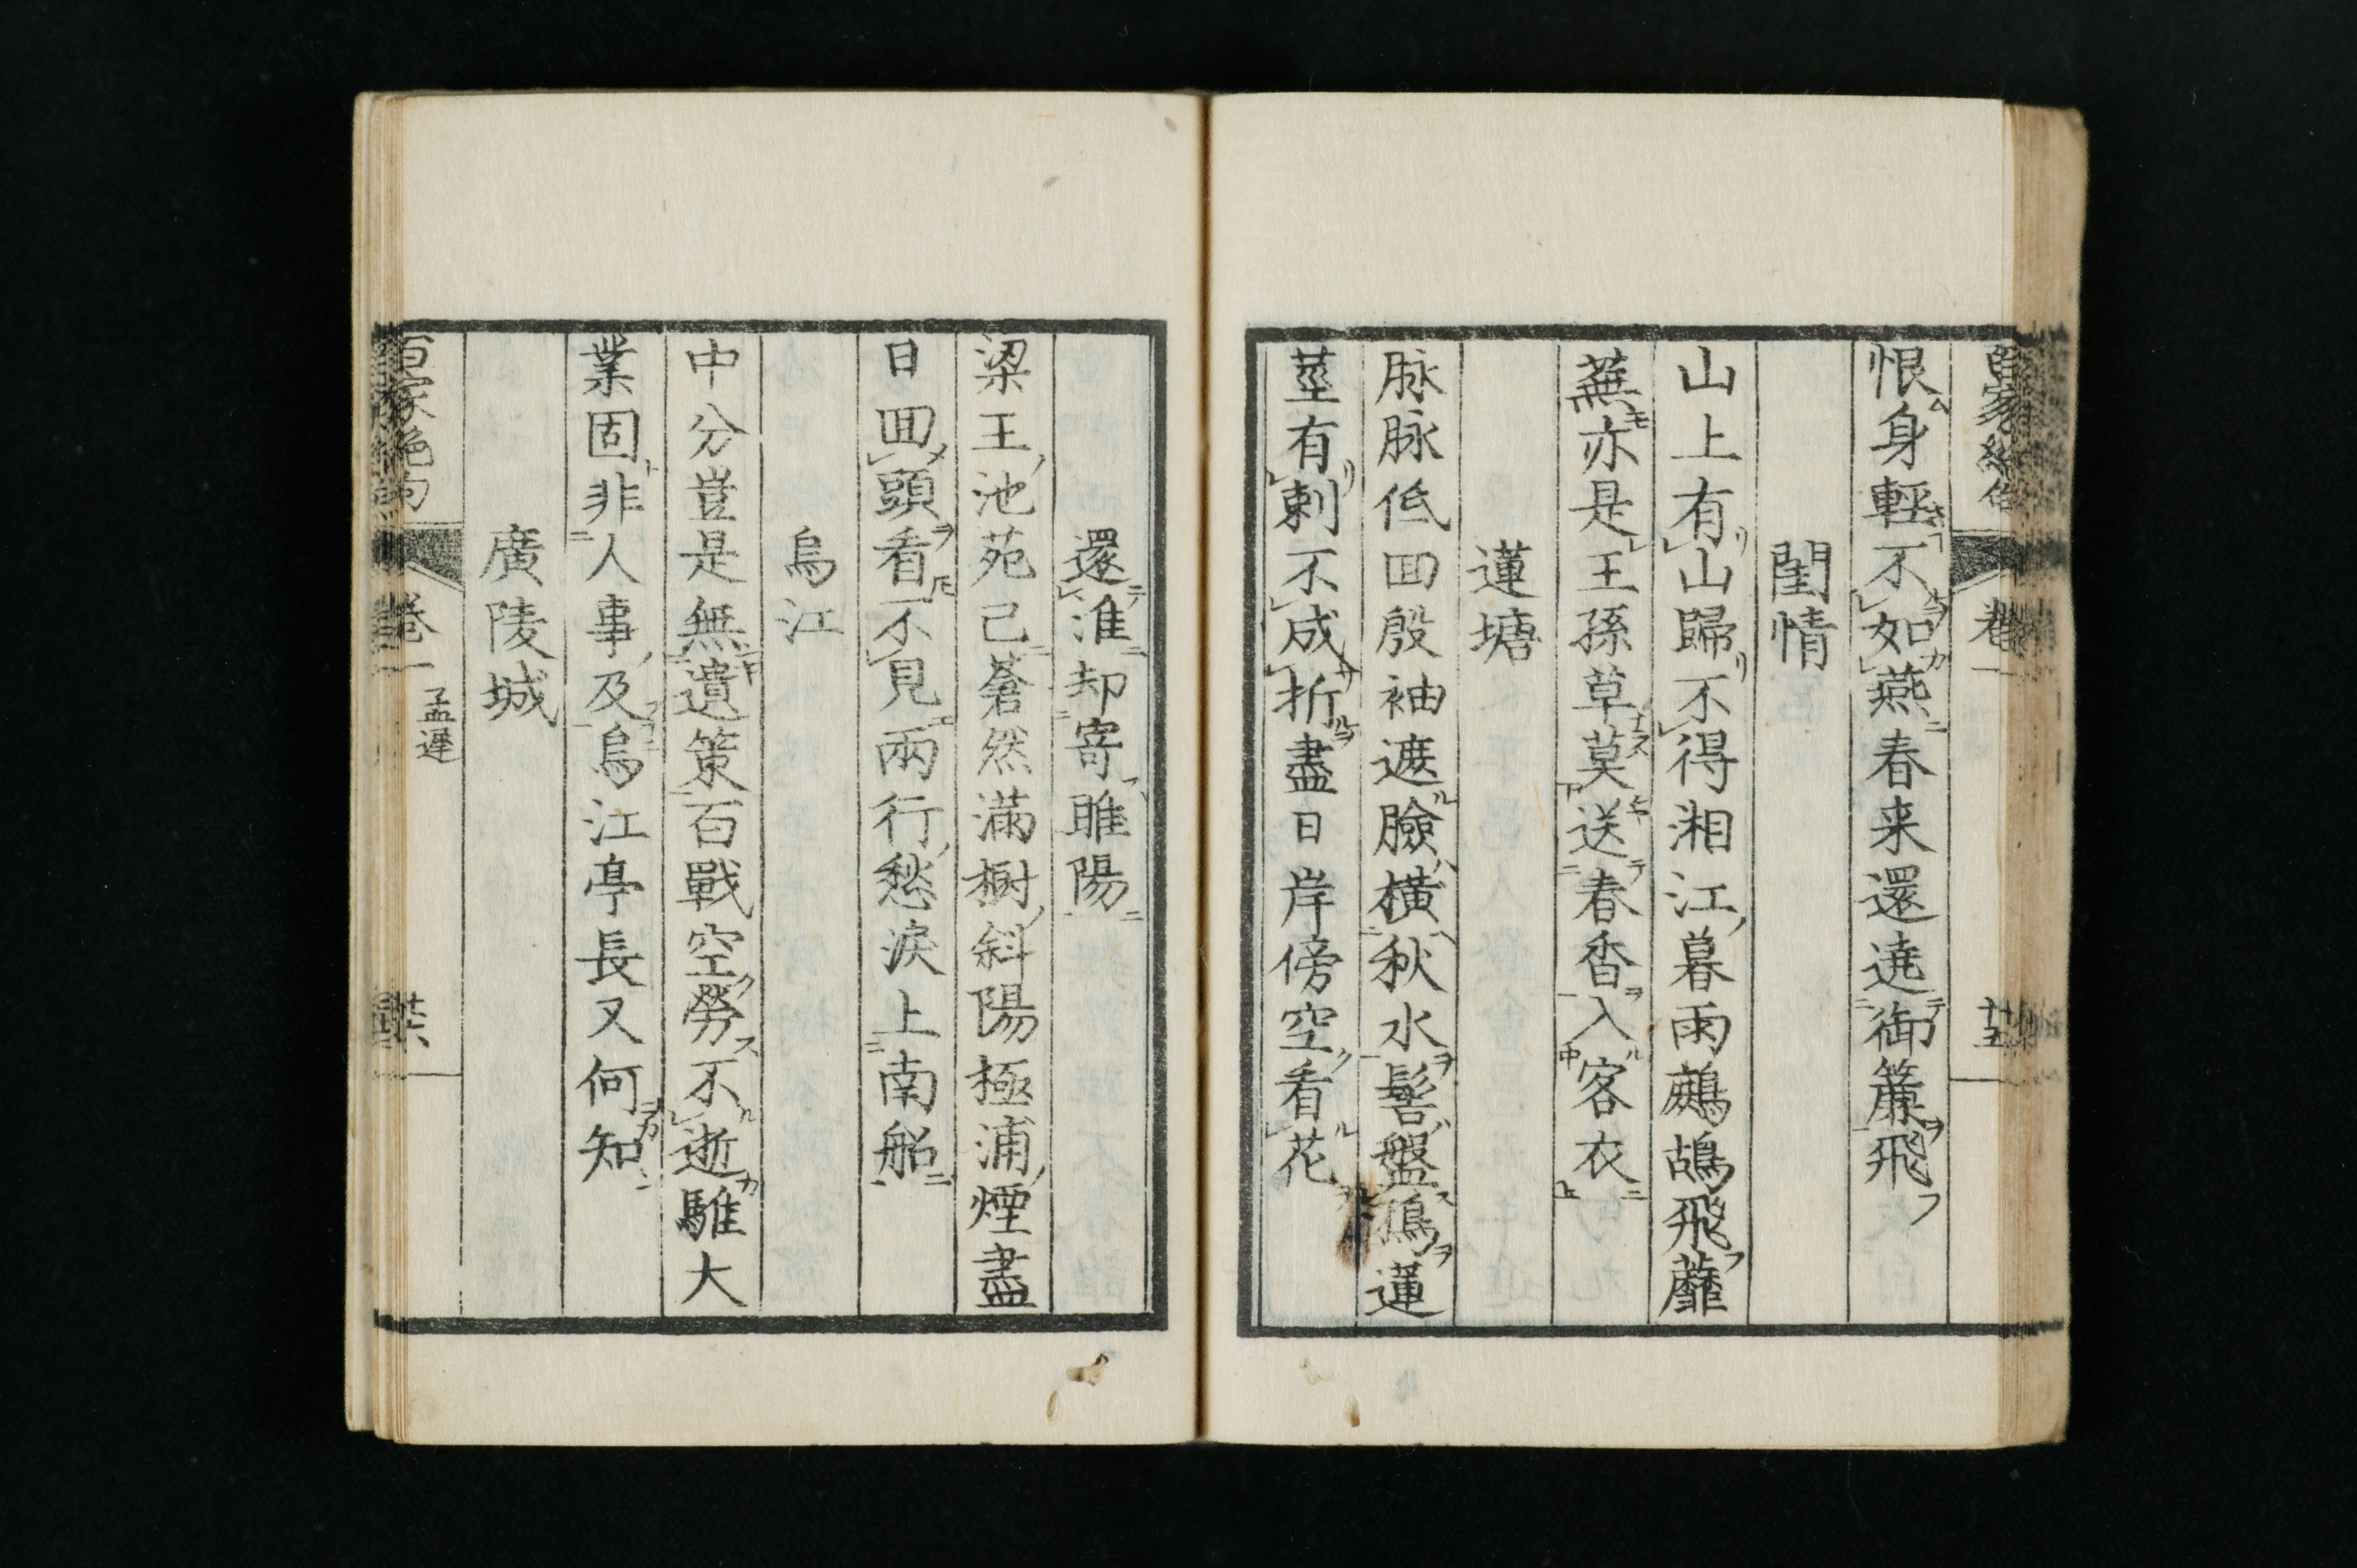 百家絶句 卷一 十五
恨身輕不如燕春来還遶御簾飛
閨情
山上有山歸不得湘江暮雨鷓鴣飛蘼
蕪亦是王孫草莫送春香入客衣
蓮塘
脉脉低回殷袖遮臉橫秋水髻盤鴉蓮
莖有刺不成折盡日岸傍空看花
還淮却寄睢陽
梁王池苑已蒼然滿樹斜陽極浦煙盡
日回頭看不見兩行愁淚上南船
烏江
中分豈是無遺策百戰空勞不逝騅大
業固非人事及烏江亭長又何知
廣陵城
百家絶句 卷一 孟遲